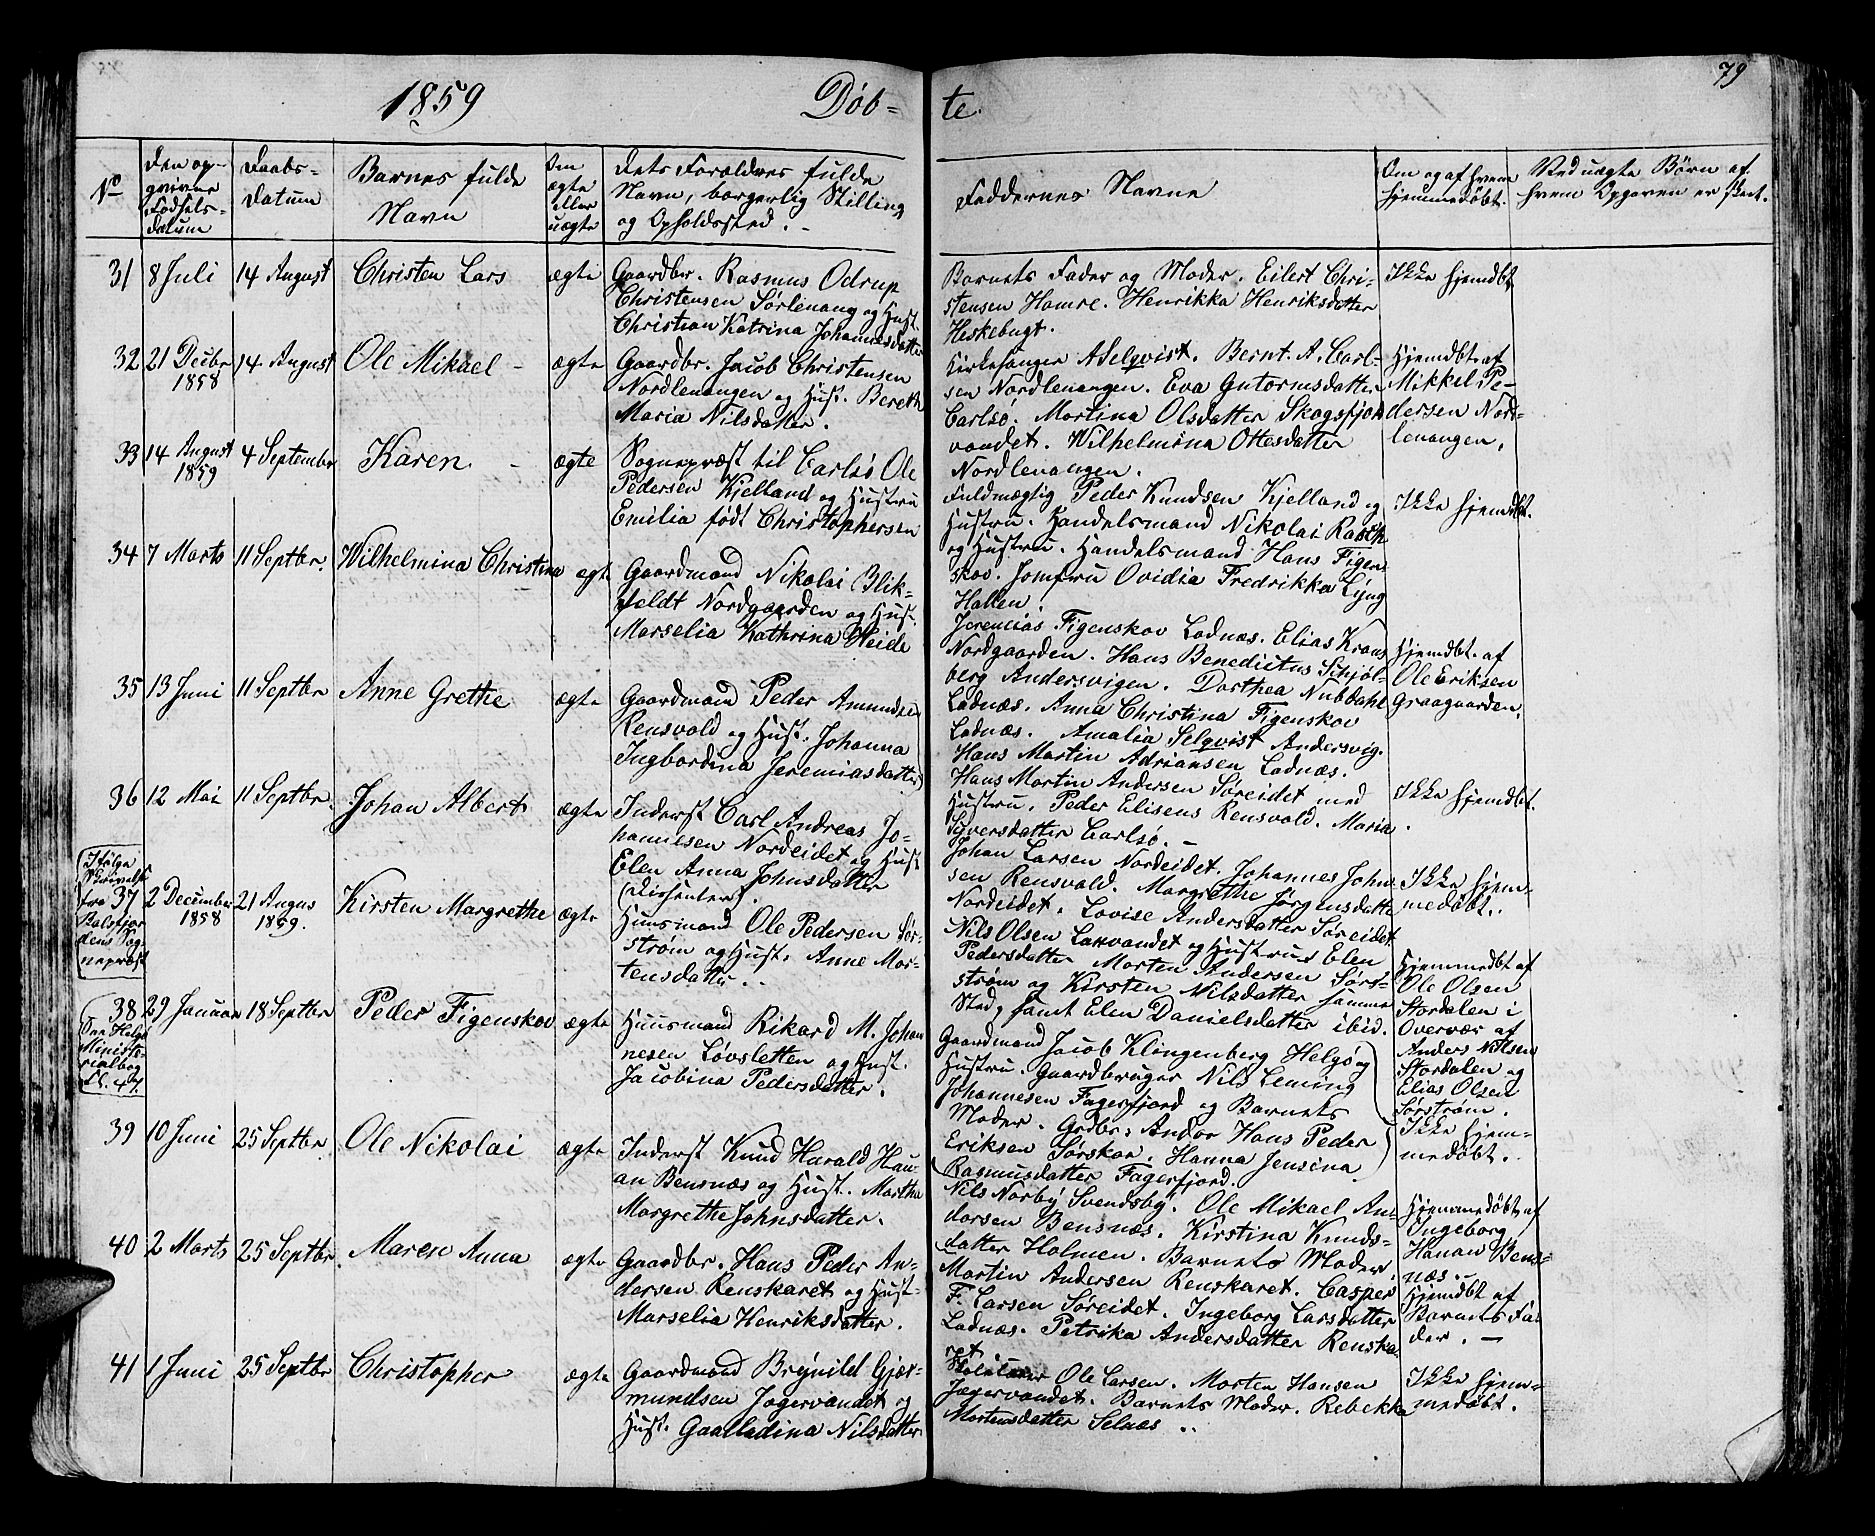 1859 Døb= te. 79
No
Den op=
givne
Fødsels=
datum
Daabs=
Datum
Barnes fulde
Navn
Om
ægte
eller
uægte
Dets Forældres fulde
Navn, borgerlig Stilling
og Opholdssted.
Faddernes Navne
Om og af hvem
hjemmedøbt.
Ved uægte Børn af
hvem Opgaven er skeet.
31 8 Juli 14 August Christen Lars ægte
Gaardbr. Rasmus Odrup
Christensen Sørlenang og Hust.
Christian Katrina Johannesdatter
Barnets Fader og Moder. Eilert Chri-
stensen Hamre. Henrikka Henriksdatter
Heskebugt.
Ikke hjemdbt
32 21 Decbr 14 August Ole Mikael - ægte
1858
Gaardbr. Jacob Christensen
Nordlenangen og Hust. Bereth
Maria Nilsdatter.
Kirkesanger A Selqvist. Bernt. A. Carl-
sen Nordlenangen. Eva Gutormsdatter
Carlsø. Martina Olsdatter Skogsfjord
vandet. Wilhelmina Ottesdatter
Nordlenangen.
Hjemdbt. af
Mikkel Pe-
dersen Nord-
lenangen.
33 14 August 4 September Karen - ægte
1859
Sognepræst til Carlsø Ole
Pedersen Kjelland og Hustru
Emilia født Christophersen
Fuldmægtig Peder Knudsen Kjelland og
Hustru. Handelsmand Nikolai Rasch
og Hustru. Handelsmand Hans Figen
skov. Jomfru Ovidia Fredrikka Lyng
Halsen.
Ikke hjemdbt.
34 7 Marts 11 Septbr. Wilhelmina Christina ægte
Gaardmand Nikolai Blik-
feldt Nordgaarden og Hust.
Marselia Kathrina Heide
Jeremias Figenskov Ladnæs. Elias Krans
Nordgaarden. Hans Benedictus Schjøl-
berg Andersvigen. Dorthea Nubdahl
Ladnæs. Anna Christina Figenskov
Ladnæs. Amalia Selqvist Andersvig.
Hans Martin Adriansen Ladnæs.
Hjemdbt. af
Ole Eriksen
Graagaarden.
35 13 Juni 11 Septbr Anne Grethe ægte
Gaardmand Peder Amundsen
Rensvold og Hust. Johanna
Ingbordina Jeremiasdatter
Hans Martin Andersen Søreidet med
Hustru. Peder Elisens Rensvold. Maria
Syversdatter Carlsø. -
Ikke hjemdbt.
36 12 Mai 11 Septbr. Johan Albert ægte
Inderst Carl Andreas Jo-
hannesen Nordeidet og Hust
Elen Anna Johnsdatter
(Dissenter).
Johan Larsen Nordeidet. Johannes John
sen Rensvold. Margrethe Jørgensdatte
Nordeidet. Lovise Andersdatter Søreidet
Ikke hjem-
medøbt.
Ifølge
Skrivelse
fra 37
Balsfjor
dens Sog-
nepræst
2 December 21 Augus Kirsten Margrethe ægte
1858 1859.
Huusmand Ole Pedersen Sør-
strøm og Hust. Anne Mor-
tensdatter.
Nils Olsen Laxvandet og Hustrus Elen
Pedersdatter Morten Andersen Sørs-
strøm og Kirsten Nilsdatter samme
Sted, samt Elen Danielsdatter ibid.
Hjemmedbt af
Ole Olsen
Stordalen i
Overvær af
Anders Nilsen
Stordalen og
Elias Olsen
Sørstrøm.
38
See Helgø
Ministe-
rialbog
47.
29 Januar 18 Septbr Peder Figenskov ægte
Huusmand Rikard M. Johan
nesen Løvsletten og Hust.
Jacobina Pedersdatter.
Gaardmand Jacob Klingenberg Helgø og
Hustru. Gaardbruger Nils Leming
Johannesen Fagerfjord og Barnets
Moder. Grdbr: Andor Hans Peder
Eriksen Sørskar. Hanna Jensina
Rasmusdatter Fagerfjord.
Ikke hjem-
medøbt.
39 10 Juni 25 Septbr Ole Nikolai ægte
Inderst Knud Harald Hau-
an Bensnæs og Hust. Martha
Margrethe Johnsdatter.
Nils Norby Svendsby. Ole Mikael An
dersen Bensnæs. Kirstina Knuds-
datter Holmen. Barnets Moder.
Hjemmedøbt af
Ingeborg
Hanan Bens-
næs. -
40 2 Marts 25 Septbr. Maren Anna ægte
Gaardbr. Hans Peder An-
dersen Renskaret og Hust.
Marselia Henriksdatter.
Martin Andersen Renskaret. Casper
F. Larsen Søreidet. Ingeborg Larsdatter
Ladnæs. Petrika Andersdatter Renska-
ret.
Hjemdbt af
Barnets Fa-
der. -
41 1 Juni 25 Septbr Christopher ægte
Gaardmand Brynild Gjær-
mundsen Jægervandet og
Hust. Gaalladina Nilsdatter
Ole Larsen. Morten Hansen
Jægervandet. Barnets Moder. Rebekka
Mortensdatter Selnæs.
Ikke hjem-
medøbt.